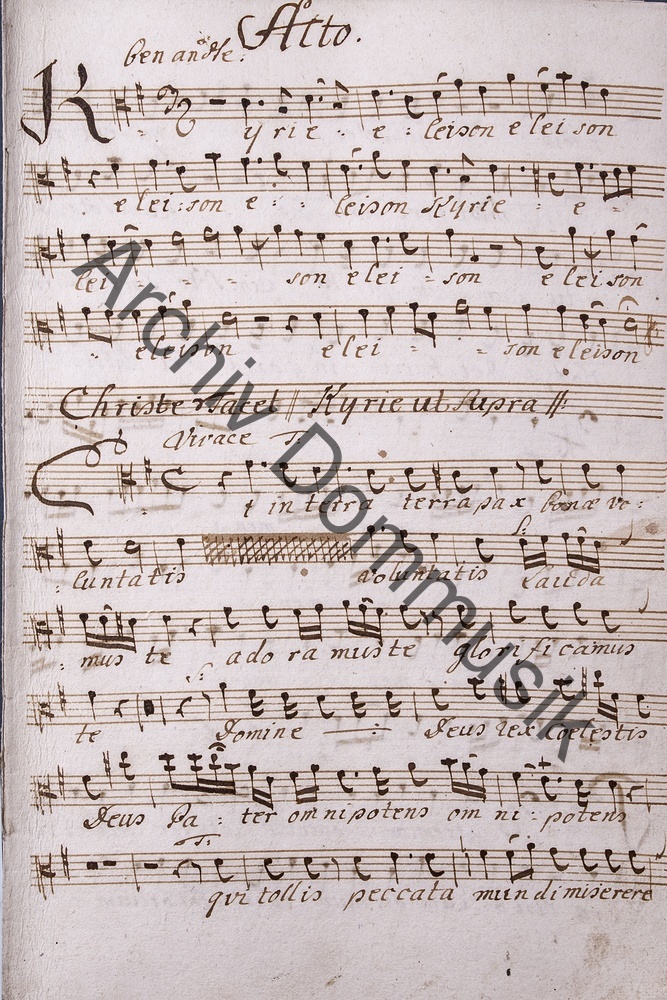 Alto.
ben andte:
Kyrie e: leison eleison
elei:son e:: leison Kyrie : e -
lei - - - son elei - son eleison
eleison elei - - son eleison
Christe tacet || Kyrie ut Supra ||:
Vivace T:
Et in terra terra pax bonæ vo:
: luntatis voluntatis Lauda
S:
: mus te adoramus te glorificamus
S:
te Domine —:— Deus rex Coelestis
Deus Pa: ter omnipotens omni: potens
T:
qui tollis peccata mundi miserere
Archiv Dommusik